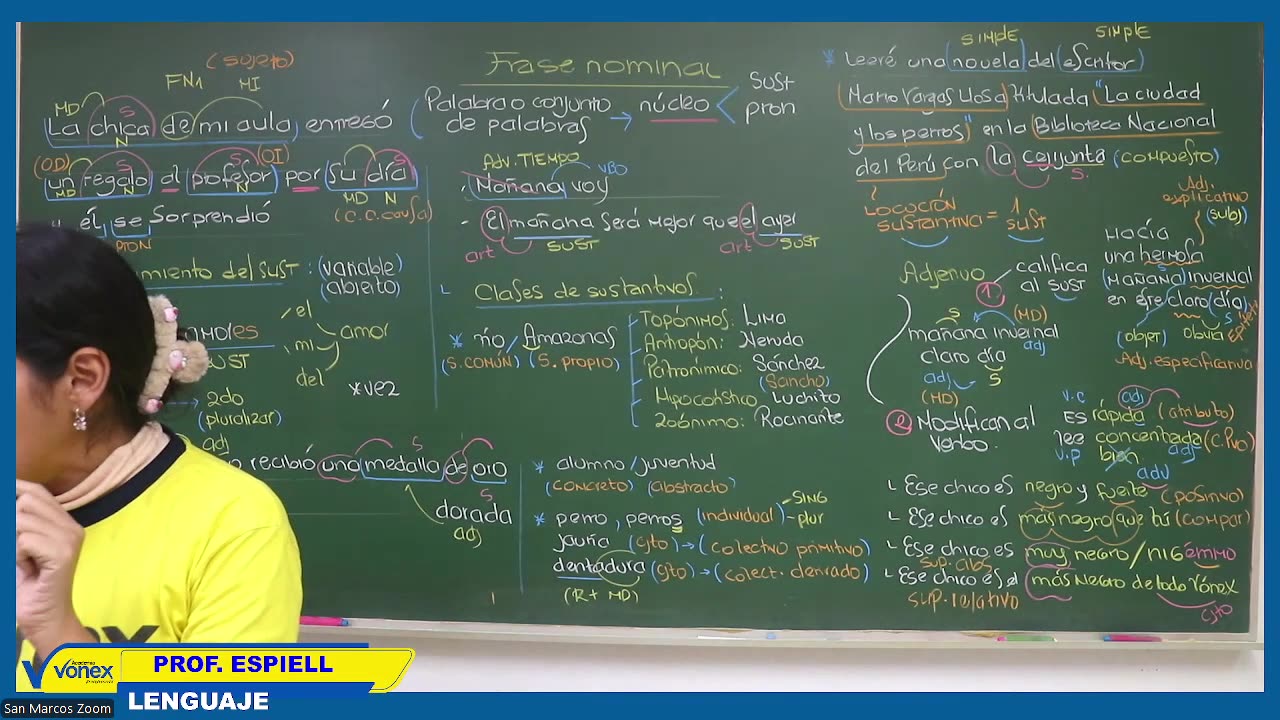 (sujeto)
FN1
MI
MD
S
La chica de mi aula entregó
N
(OD)
S
S
(OI)
S
un regalo al profesor por su día
MD
N
N
MD N
(C.C. causa)
y él se sorprendió
PRON
miento del SUST : (variable)
(abierto)
amores
SUST
el
mi
del
amor
*vez
2do
(pluralizar)
adj
recibió una medalla de oro
S
S
dorada
adj
Frase nominal
(Palabra o conjunto
de palabras → núcleo
SUST
pron
Adv. TIEMPO
VBO
. Mañana voy
- El mañana será mejor que el ayer
art
SUST
art
SUST
Clases de sustantivos :
* río / Amazonas
(S. COMÚN) (S. propio)
Topónimos: Lima
Antropón: Neruda
Patronímico: Sánchez
(Sancho)
Hipocorístico: Luchito
Zoónimo: Rocinante
* alumno / juventud
(concreto) (abstracto)
* perro, perros (individual)
SING
plur
jauría (cjto) → (colectivo primitivo)
dentadura (cjto) → (colect. derivado)
(R + MD)
SIMPLE
SIMPLE
* Leeré una novela del escritor
Mario Vargas Llosa titulada "La ciudad
y los perros" en la Biblioteca Nacional
del Perú con la conjunta (compuesto)
S.
LOCUCIÓN
SUSTANTIVA = 1 SUST
Adjetivo
1
califica
al SUST
S
(MD)
mañana invernal
adj
claro día
adj
S
(MD)
2 Modifican al
verbo.
Adj.
explicativo
(subj)
Hacía
una hermosa
S
(mañana) invernal
en este claro (día)
S
(objet)
obvia
Adj. especificativo
V.C
adj
ES rápida (atributo)
lee concentrada (C. PVO)
V.P
bien
adj
adv
Ese chico es negro y fuerte (positivo)
Ese chico es más negro que tú (compar)
Ese chico es muy negro / nigérrimo
sup. abs
Ese chico es el más negro de todo Vonex
sup. relativo
cjto
Academia
Vonex
PROF. ESPIELL
LENGUAJE
San Marcos Zoom